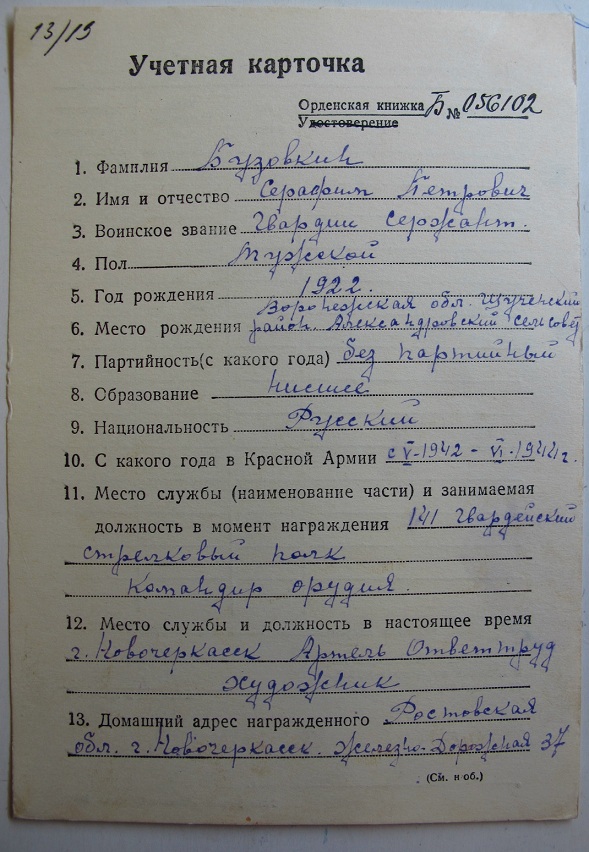 13/19
Учетная карточка
Орденская книжка Б № 056102
Удостоверение
1. Фамилия Бузовкин
2. Имя и отчество Серафим Петрович
3. Воинское звание Гвардии Сержант.
4. Пол Мужской
5. Год рождения 1922.
Воронежская обл. Щученский
6. Место рождения район. Александровский сельсовет
7. Партийность(с какого года) без партийный
8. Образование нисшее
9. Национальность Русский
10. С какого года в Красной Армии с V-1942 - VI-1944г.
11. Место службы (наименование части) и занимаемая
должность в момент награждения 141 Гвардейский
стрелковый полк
командир орудия.
12. Место службы и должность в настоящее время
г. Новочеркасск Артель Ответтруд
художник
13. Домашний адрес награжденного Ростовская
обл. г. Новочеркасск. Железно-Дорожная 37
(См. н об.)